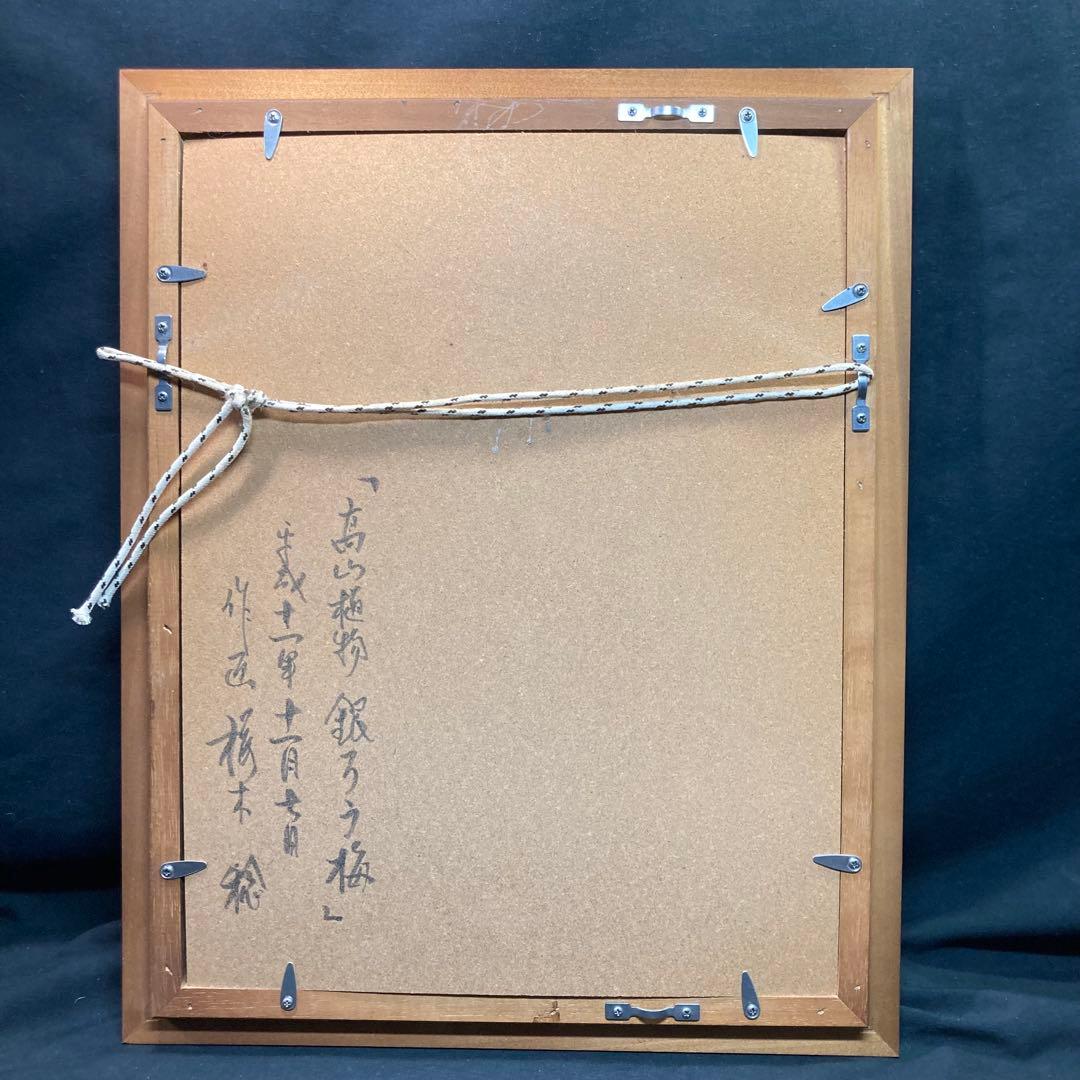 「高山植物 銀ろう梅」
平成十一年十一月七日
作 画 桜木